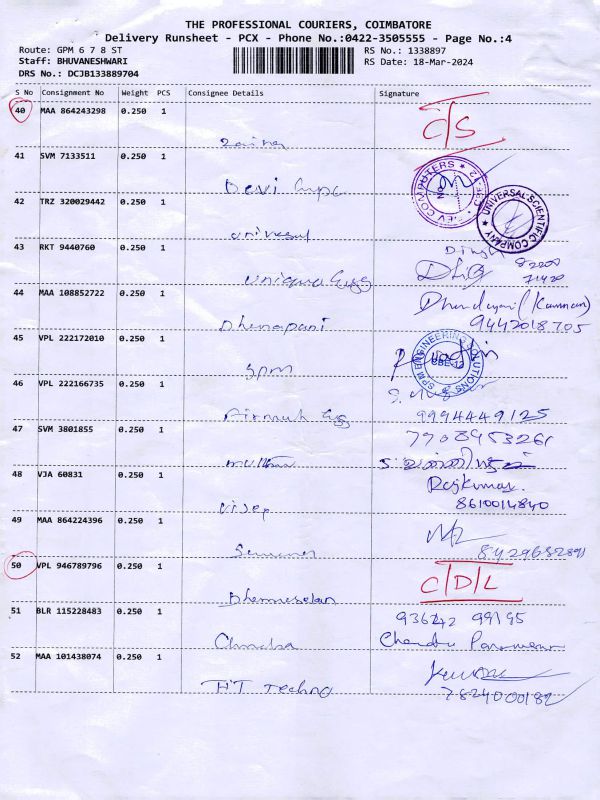 THE PROFESSIONAL COURIERS, COIMBATORE
Delivery Runsheet - PCX - Phone No.:0422-3505555 - Page No.:4
Route: GPM 6 7 8 ST
RS No.: 1338897
Staff: BHUVANESHWARI
RS Date: 18-Mar-2024
DRS No.: DCJB133889704
S No Consignment No Weight PCS Consignee Details Signature
40 MAA 864243298 0.250 1
C/S
41 SVM 7133511 0.250 1
Devi
COMPUTERS
42 TRZ 320029442 0.250 1
UNIVERSAL SCIENTIFIC COMPANY
43 RKT 9440760 0.250 1
unique Engg
44 MAA 108852722 0.250 1
Dhanapani
9442018705
45 VPL 222172010 0.250 1
SPM
SPM ENGINEERING SOLUTIONS
46 VPL 222166735 0.250 1
9994449125
47 SVM 3801855 0.250 1
7708953261
48 VJA 60831 0.250 1
Rajkumar.
8610014840
49 MAA 864224396 0.250 1
50 VPL 946789796 0.250 1
C/D/L
51 BLR 115228483 0.250 1
93642 99195
Chandra
52 MAA 101438074 0.250 1
HT Techno
7824000182